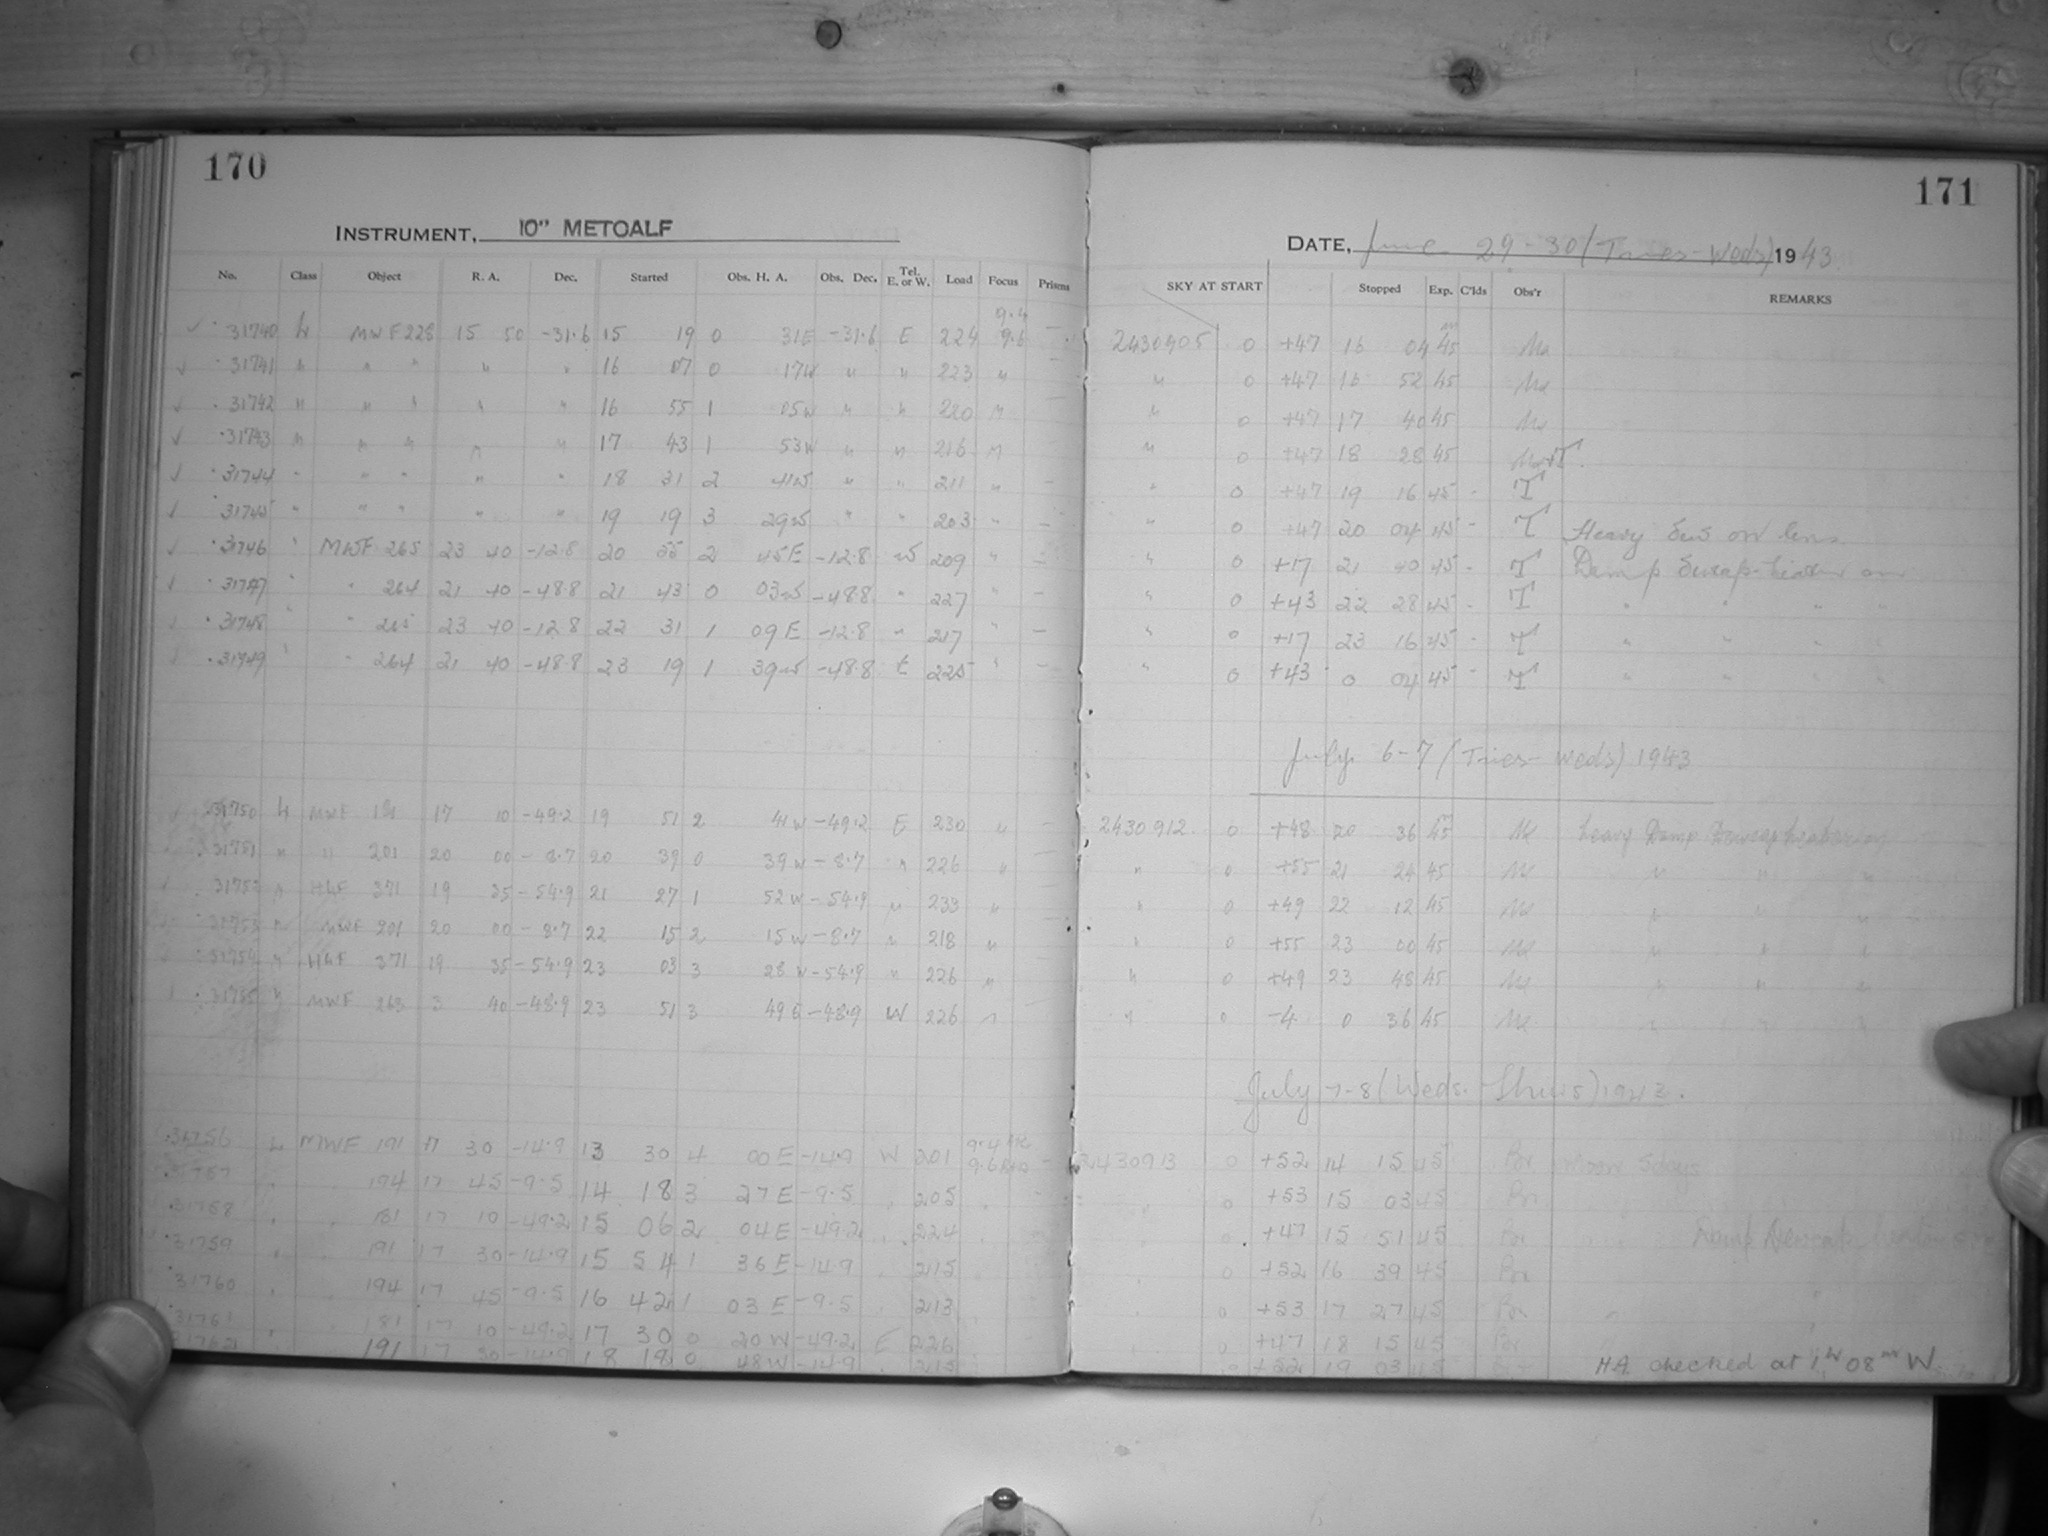 170
INSTRUMENT, 10" METCALF
No. Class Object R. A. Dec. Started Obs. H. A. Obs. Dec. Tel. E. or W. Load Focus Prisms
9.4
31740 L MWF 228 15 50 -31.6 15 19 0 31E -31.6 E 224 9.6 -
31741 " " " " " 16 07 0 17W " " 223 "
31742 " " " " " 16 55 1 05W " " 220 "
31743 " " " " " 17 43 1 53W " " 216 "
31744 " " " " " 18 31 2 41W " " 211 " -
31745 " " " " " 19 19 3 29W " " 203 " -
31746 " MWF 265 23 40 -12.8 20 55 2 45E -12.8 W 209 " -
31747 " " 264 21 40 -48.8 21 43 0 03W -48.8 " 227 " -
31748 " " 265 23 40 -12.8 22 31 1 09E -12.8 " 217 " -
31749 " " 264 21 40 -48.8 23 19 1 39W -48.8 E 225 " -
31750 L MWF 181 17 10 -49.2 19 51 2 41W -49.2 E 230 " -
31751 " " 201 20 00 -8.7 20 39 0 39W -8.7 " 226 "
31752 " HLF 371 19 35 -54.9 21 27 1 52W -54.9 " 233 "
31753 " MWF 201 20 00 -8.7 22 15 2 15W -8.7 " 218 "
31754 " HLF 371 19 35 -54.9 23 03 3 28W -54.9 " 226 "
31755 " MWF 263 3 40 -48.9 23 51 3 49E -48.9 W 226 "
31756 L MWF 191 17 30 -14.9 13 30 4 00E -14.9 W 201 9.4 9.6 -
31757 " " 194 17 45 -9.5 14 18 3 27E -9.5 " 205 "
31758 " " 181 17 10 -49.2 15 06 2 04E -49.2 " 224
31759 " " 191 17 30 -14.9 15 54 1 36E -14.9 " 215
31760 " " 194 17 45 -9.5 16 42 1 03E -9.5 " 213
31761 " 181 17 10 -49.2 17 30 0 20W -49.2 E 226
31762 " 191 17 30 -14.9 18 18 0 48W -14.9 215
171
DATE, June 29-30 (Tues-Weds) 1943
SKY AT START Stopped Exp. C'lds Obs'r REMARKS
2430905 0 +47 16 04 45 Ma
" 0 +47 16 52 45 Ma
" 0 +47 17 40 45 Ma
" 0 +47 18 28 45
" 0 +47 19 16 45 - T
" 0 +47 20 04 45 - T Heavy Dew on lens
" 0 +17 21 40 45 - T Damp Dewcap-heater on
" 0 +43 22 28 45 - T " " " "
" 0 +17 23 16 45 - T " " " "
" 0 +43 0 04 45 - T " " " "
July 6-7 (Tues-Weds) 1943
2430912 0 +48 20 36 45 Ma heavy Damp Dewcap heater on
" 0 +55 21 24 45 Ma " " "
" 0 +49 22 12 45 Ma " " "
" 0 +55 23 00 45 Ma " " "
" 0 +49 23 48 45 Ma " " "
" 0 -4 0 36 45 Ma " " "
July 7-8 (Weds.-Thurs) 1943.
2430913 0 +52 14 15 45 Moon 5 days
" 0 +53 15 03 45
" 0 +47 15 51 45 Damp
" 0 +52 16 39 45
" 0 +53 17 27 45
0 +47 18 15 45
0 +52 19 03 45 H.A. checked at 1h 08m W